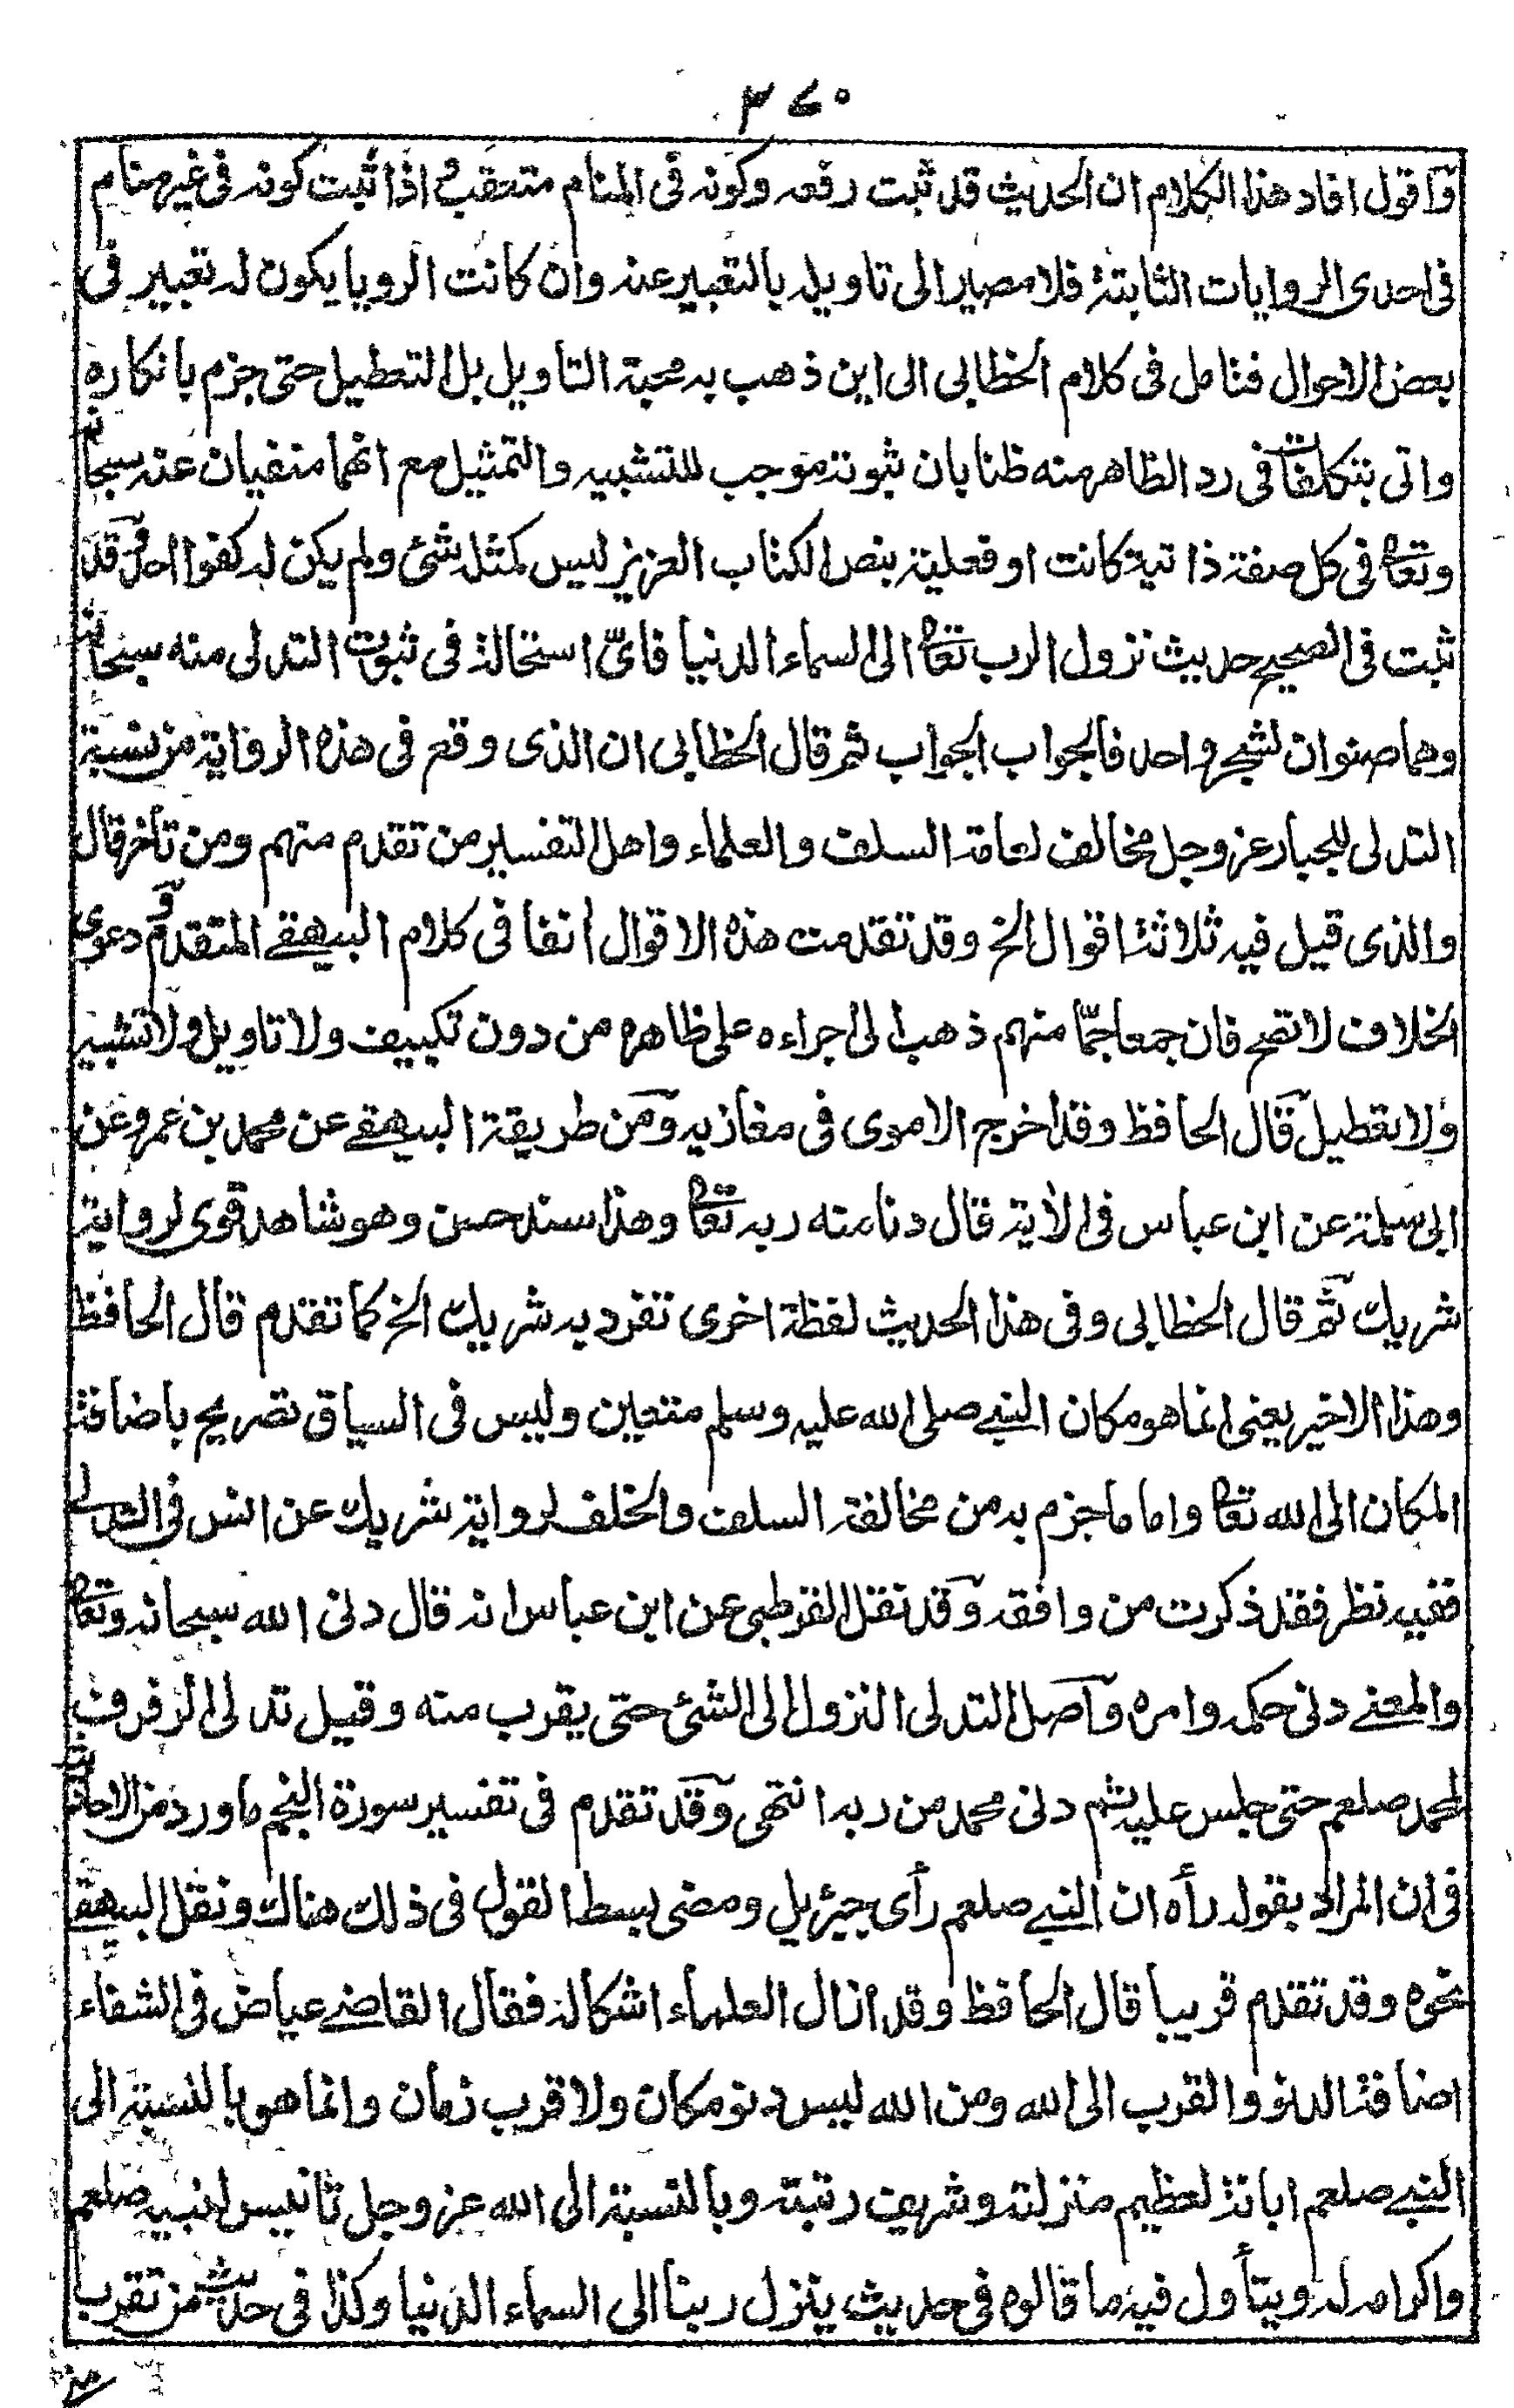 ٣٤٠
وأقول افاد هذا الكلام ان الحديث قد ثبت رفعه وكونه فى المنام متعقب اذا ثبت كونه فى غير منام
فى احدى الروايات الثابتة فلا مصير الى تاويله بالتعبير عنه وان كانت الرويا يكون له تعبير فى
بعض الاحوال فتامل فى كلام الخطابى الى اين ذهب به محبة التاويل بل التعطيل حتى جزم بانكاره
واتى بتكلفات فى رد الظاهر منه ظنا بان ثبوته موجب للتشبيه والتمثيل مع انهما منفيان عنه سبحانه
وتعا فى كل صفة ذاتية كانت او فعلية بنص الكتاب العزيز ليس كمثله شئ ولم يكن له كفوا احد وقد
ثبت فى الصحيح حديث نزول الرب تعا الى السماء الدنيا فاىّ استحالة فى ثبوت التدلى منه سبحانه
وهما صنوان لشجر واحد فالجواب الجواب ثم قال الخطابى ان الذى وقع فى هذه الرواية من نسبة
التدلى للجبار عز وجل مخالف لعامة السلف والعلماء واهل التفسير من تقدم منهم ومن تأخر قال
والذى قيل فيه ثلاثة اقوال الخ وقد تقدمت هذه الاقوال أنفا فى كلام البيهقے المتقدم و دعوى
الخلاف لا تصح فان جمعا جمّا منهم ذهب الى اجراءه على ظاهره من دون تكييف ولا تاويل ولا تشبيه
ولا تعطيل قال الحافظ وقد اخرج الاموى فى مغازيه ومن طريقة البيهقے عن محمد بن عمرو عن
ابى سلمة عن ابن عباس فى الأية قال دنا منه ربه تعا وهذا سند حسن وهو شاهد قوى لرواية
شريك ثم قال الخطابى وفى هذا الحديث لفظة اخرى تفرد به شريك الخ كما تقدم قال الحافظ
وهذا الاخير يعنى انما هو مكان النبے صلى الله عليه وسلم متعين وليس فى السياق تصريح باضافة
المكان الى الله تعا واما ما جزم به من مخالفة السلف والخلف لرواية شريك عن انس فى التدلى
ففيه نظر فقد ذكرت من وافقه وقد نقل القرطبى عن ابن عباس انه قال دنى الله سبحانه وتعا
والمعنے دنى حكمه وامره وأصل التدلى النزول الى الشئ حتى يقرب منه وقيل تدلى الرفرف
لمحمد صلعم حتى جلس عليه ثم دنى محمد من ربه انتهى وقد تقدم فى تفسير سورة النجم ما ورد من الاحاديث
فى ان المراد بقوله رأه ان النبے صلعم رأى جبرئيل ومضى بسط القول فى ذلك هناك ونقل البيهقے
نحوه وقد تقدم قريبا قال الحافظ وقد ازال العلماء اشكاله فقال القاضے عياض فى الشفاء
اضافة الدنو والقرب الى الله ومن الله ليس دنو مكان ولا قرب زمان وانما هو بالنسبة الى
النبے صلعم ابانة لعظيم منزلته وشريف رتبته وبالنسبة الى الله عز وجل تانيس لنبيه صلعم
واكرامه له ويتأول فيه ما قالوه فى حديث ينزل ربنا الى السماء الدنيا وكذا فى حديث من تقرب